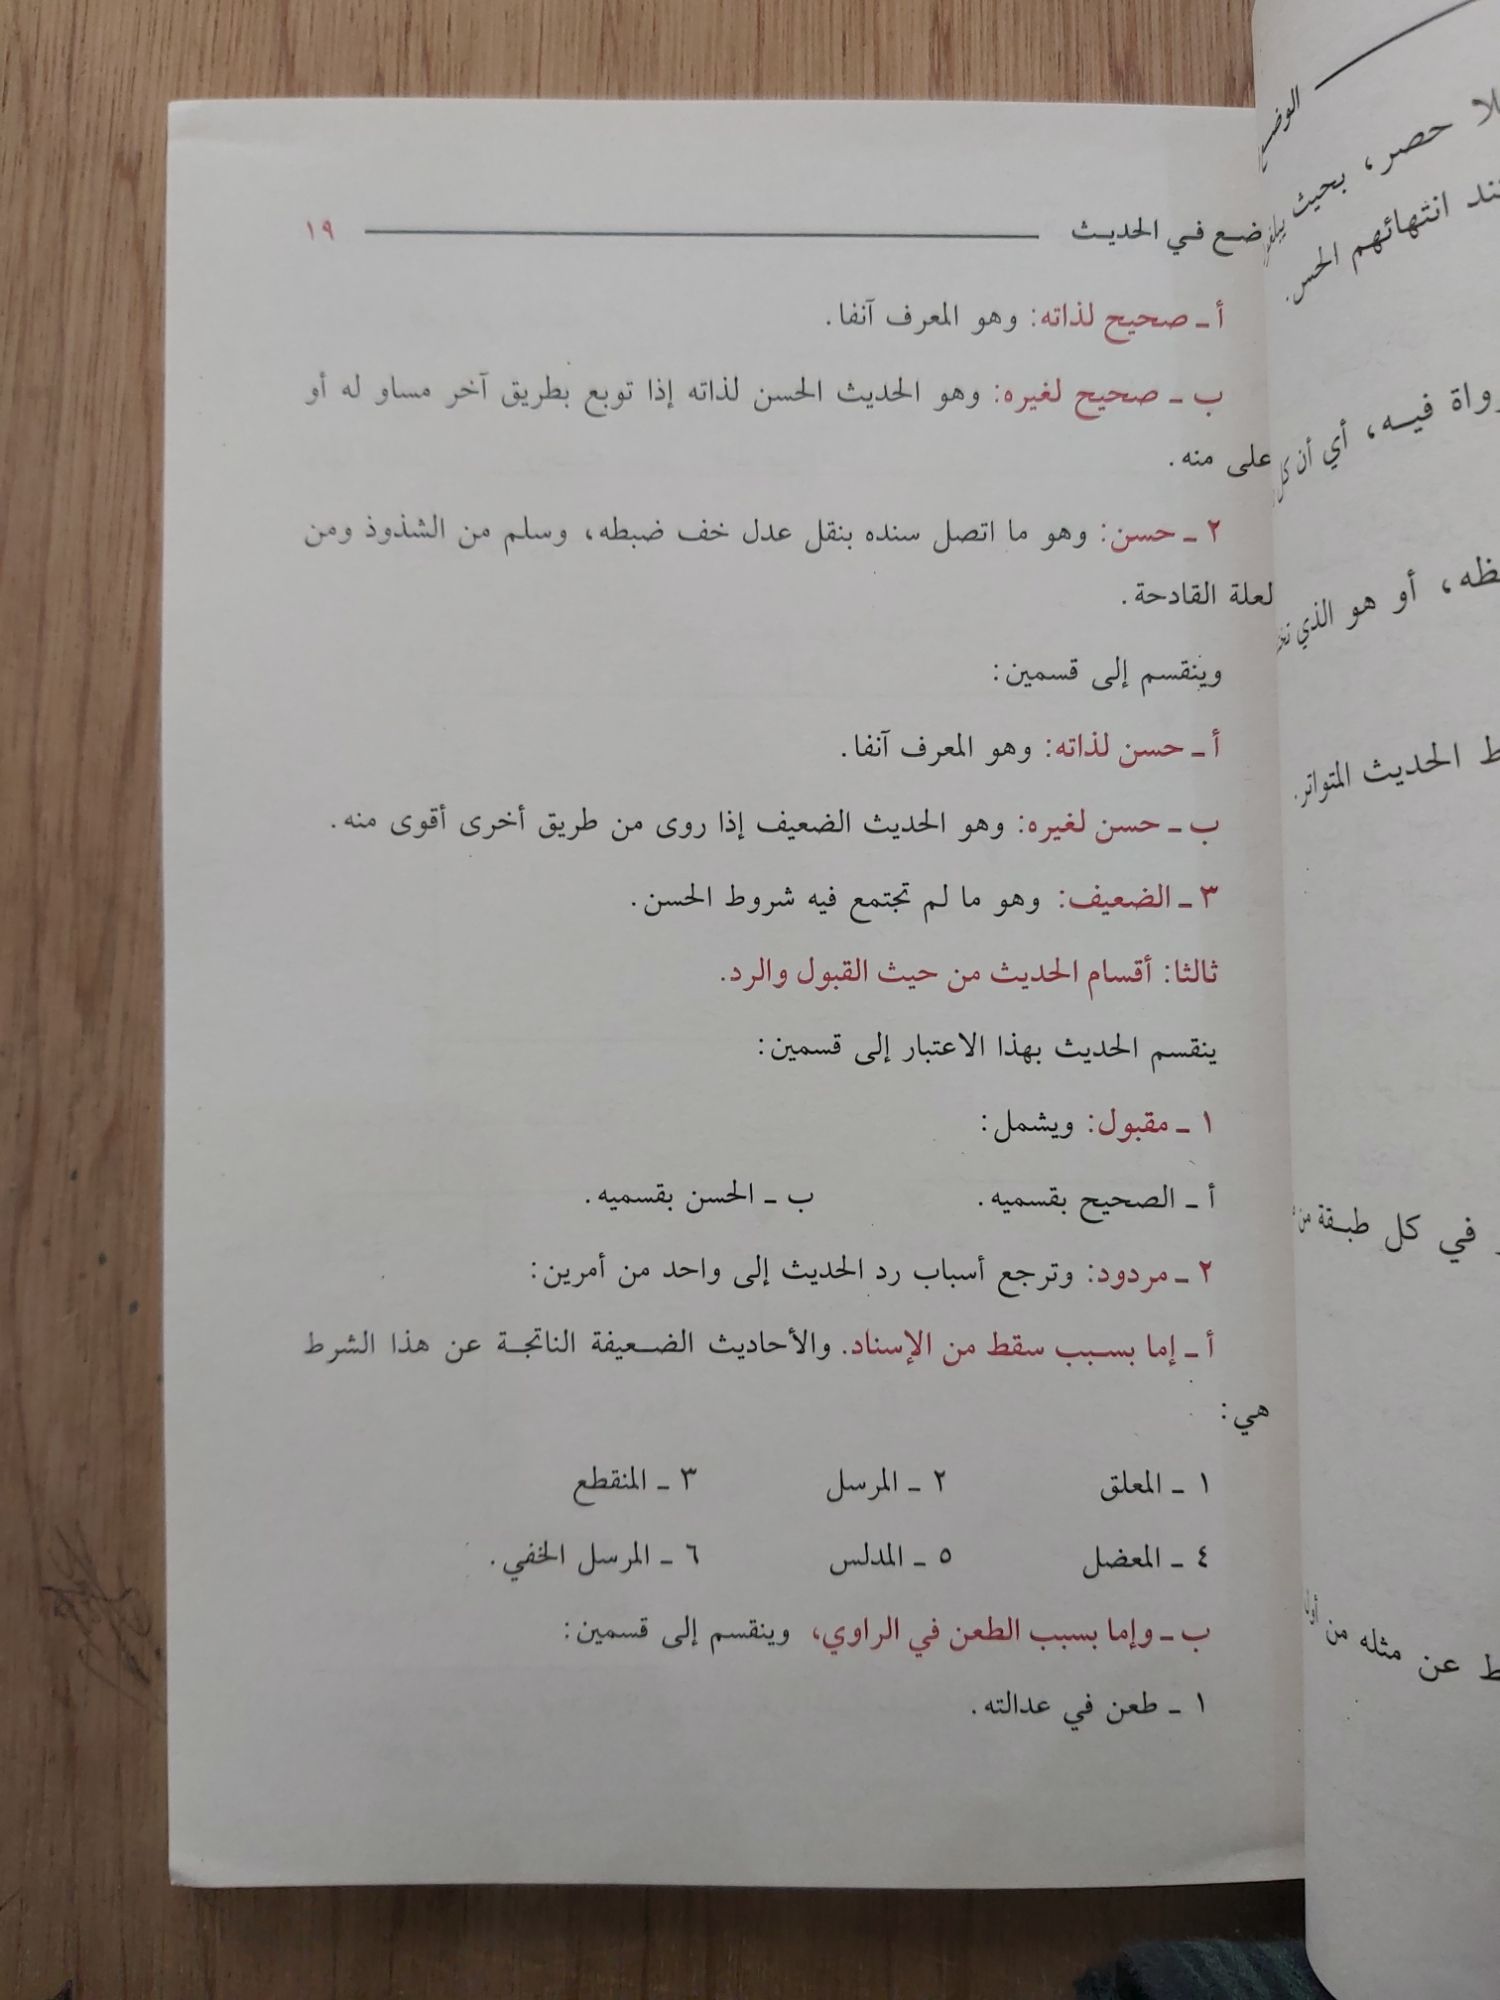 ضع في الحديث ١٩
أ ـ صحيح لذاته: وهو المعرف آنفا.
ب ـ صحيح لغيره: وهو الحديث الحسن لذاته إذا توبع بطريق آخر مساو له أو
على منه.
٢ ـ حسن: وهو ما اتصل سنده بنقل عدل خف ضبطه، وسلم من الشذوذ ومن
لعلة القادحة.
وينقسم إلى قسمين:
أ ـ حسن لذاته: وهو المعرف آنفا.
ب ـ حسن لغيره: وهو الحديث الضعيف إذا روى من طريق أخرى أقوى منه.
٣ ـ الضعيف: وهو ما لم تجتمع فيه شروط الحسن.
ثالثا: أقسام الحديث من حيث القبول والرد.
ينقسم الحديث بهذا الاعتبار إلى قسمين:
١ ـ مقبول: ويشمل:
أ ـ الصحيح بقسميه. ب ـ الحسن بقسميه.
٢ ـ مردود: وترجع أسباب رد الحديث إلى واحد من أمرين:
أ ـ إما بسبب سقط من الإسناد. والأحاديث الضعيفة الناتجة عن هذا الشرط
هي:
١ ـ المعلق ٢ ـ المرسل ٣ ـ المنقطع
٤ ـ المعضل ٥ ـ المدلس ٦ ـ المرسل الخفي.
ب ـ وإما بسبب الطعن في الراوي، وينقسم إلى قسمين:
١ ـ طعن في عدالته.
حصر، بحيث
انتهائهم الحس.
رواة فيه، أي أن كل
أو هو الذي
الحديث المتواتر.
في كل طبقة من
عن مثله من